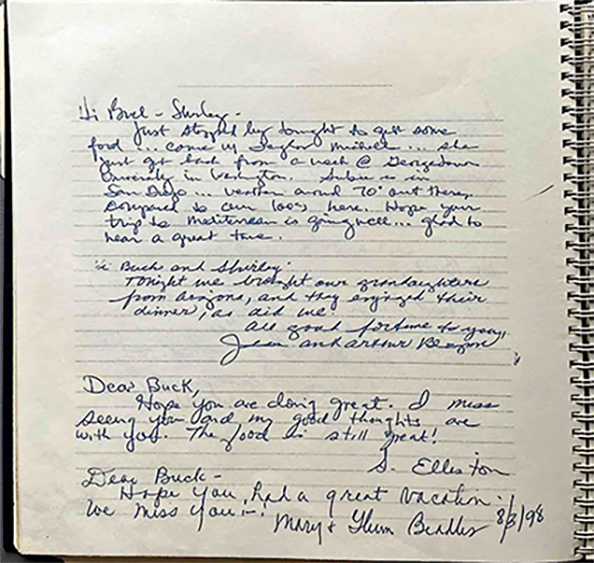 Hi Buck - Shirley -
Just stopped by tonight to get some
food ... came w/ Michele ... she
just got back from a week @ Georgetown
University in Washington. is in
San Diego ... weather around 70° out there,
compared to our 100's here. Hope your
trip to Mediterean is going well... glad to
hear a great time.
Hi Buck and Shirley:
Tonight we brought our grandaughters
from and they enjoyed their
dinner, as did we.
All good fortune to you,
Jean and Arthur
Dear Buck,
Hope you are doing great. I miss
seeing you and my good thoughts are
with you. The food is still great!
S. Elleston
Dear Buck -
Hope you had a great vacation.
We miss you!
Mary & 8/3/98